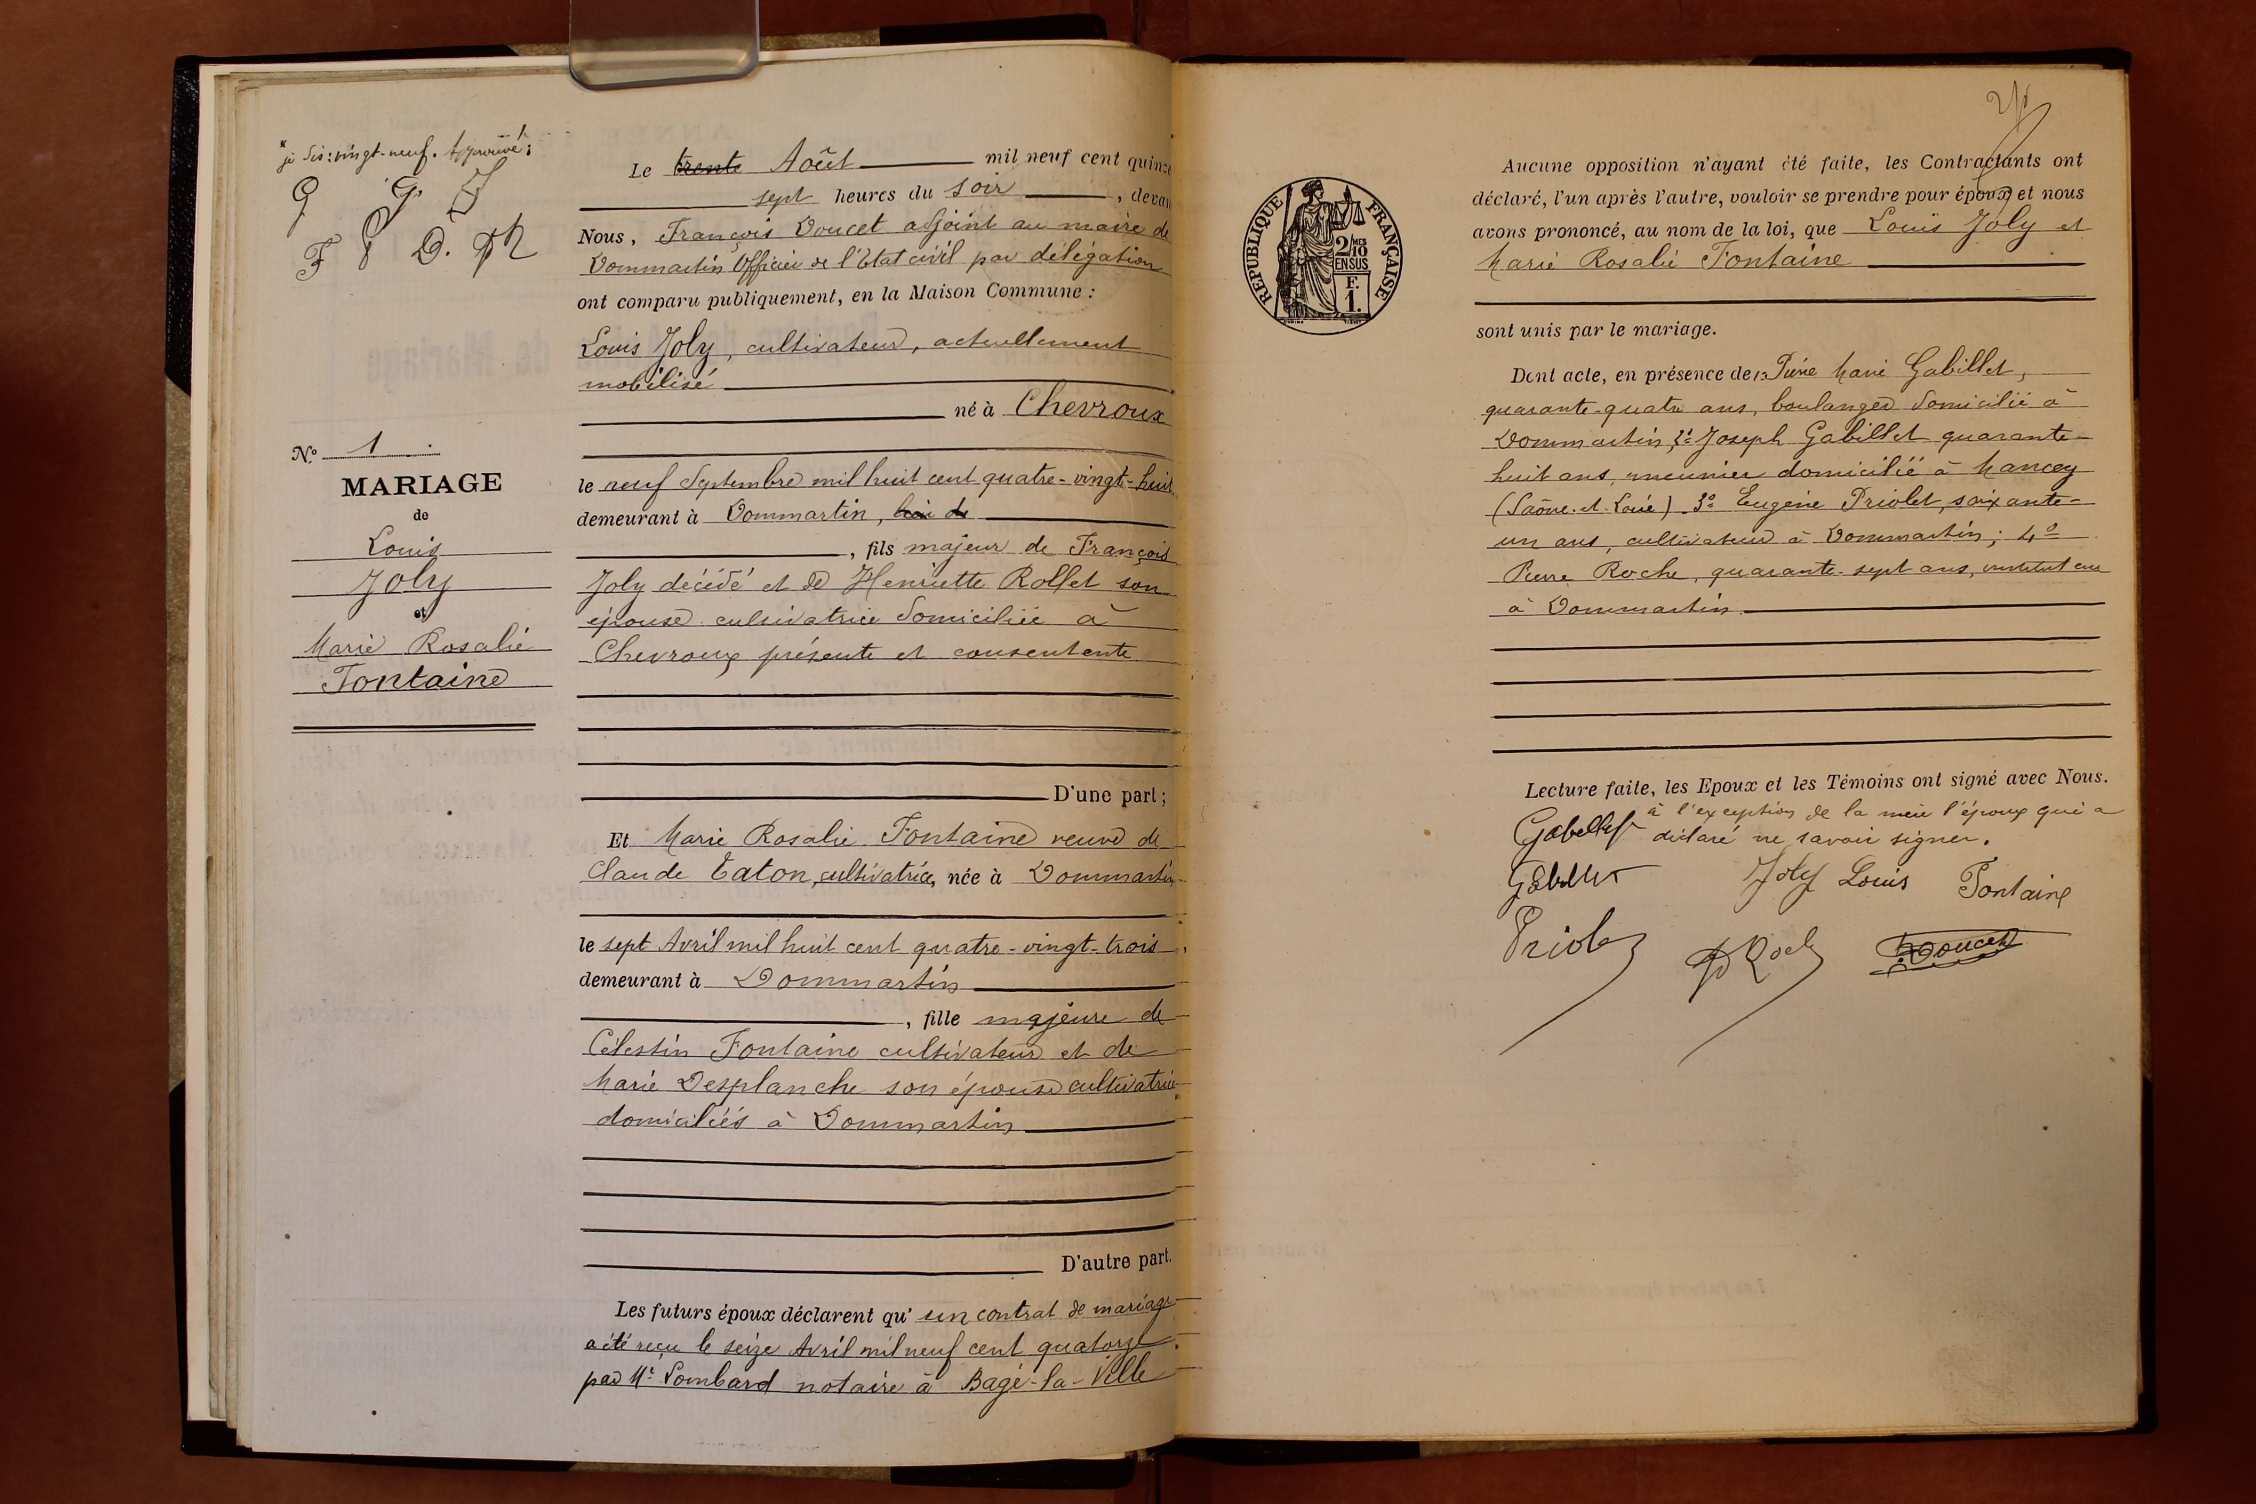 * je dis: vingt-neuf. Approuvé.
G G J
F P D. PR
N.º 1
MARIAGE
de
Louis
Joly
et
Marie Rosalie
Fontaine
Le trente Août mil neuf cent quinze
sept heures du soir, devan
Nous, François Doucet adjoint au maire de
Dommartin Officier de l'Etat civil par délégation
ont comparu publiquement, en la Maison Commune :
Louis Joly, cultivateur, actuellement
mobilisé
né à Chevroux
le neuf Septembre mil huit cent quatre-vingt-huit
demeurant à Dommartin,
, fils majeur de François
Joly décédé et de Henriette Rollet son
épouse cultivatrice domiciliée à
Chevroux présente et consentante
D'une part;
Et Marie Rosalie Fontaine veuve de
Claude Taton, cultivatrice, née à Dommartin
le sept Avril mil huit cent quatre-vingt-trois
demeurant à Dommartin
, fille majeure de
Célestin Fontaine cultivateur et de
Marie Desplanche son épouse cultivatrice
domiciliés à Dommartin
D'autre part.
Les futurs époux déclarent qu'un contrat de mariage
a été reçu le seize Avril mil neuf cent quatorze
par Me Lombard notaire à Bagé-la-Ville
REPUBLIQUE FRANÇAISE
2/10 MES
EN SUS
F.
1.
Aucune opposition n'ayant été faite, les Contractants ont
déclaré, l'un après l'autre, vouloir se prendre pour époux et nous
avons prononcé, au nom de la loi, que Louis Joly et
Marie Rosalie Fontaine
sont unis par le mariage.
Dont acte, en présence de 1º Pierre Marie Gabillet,
quarante-quatre ans, boulanger domicilié à
Dommartin, 2º Joseph Gabillet quarante-
huit ans, meunier domicilié à Mancey
(Saône-et-Loire) 3º Eugène Priolet, soixante-
un ans, cultivateur à Dommartin; 4º
Pierre Roche, quarante-sept ans, instituteur
à Dommartin
Lecture faite, les Epoux et les Témoins ont signé avec Nous.
à l'exception de la mère l'époux qui a
Gabellet déclaré ne savoir signer.
Gabillet Joly Louis Fontaine
Priole PRoch Doucet